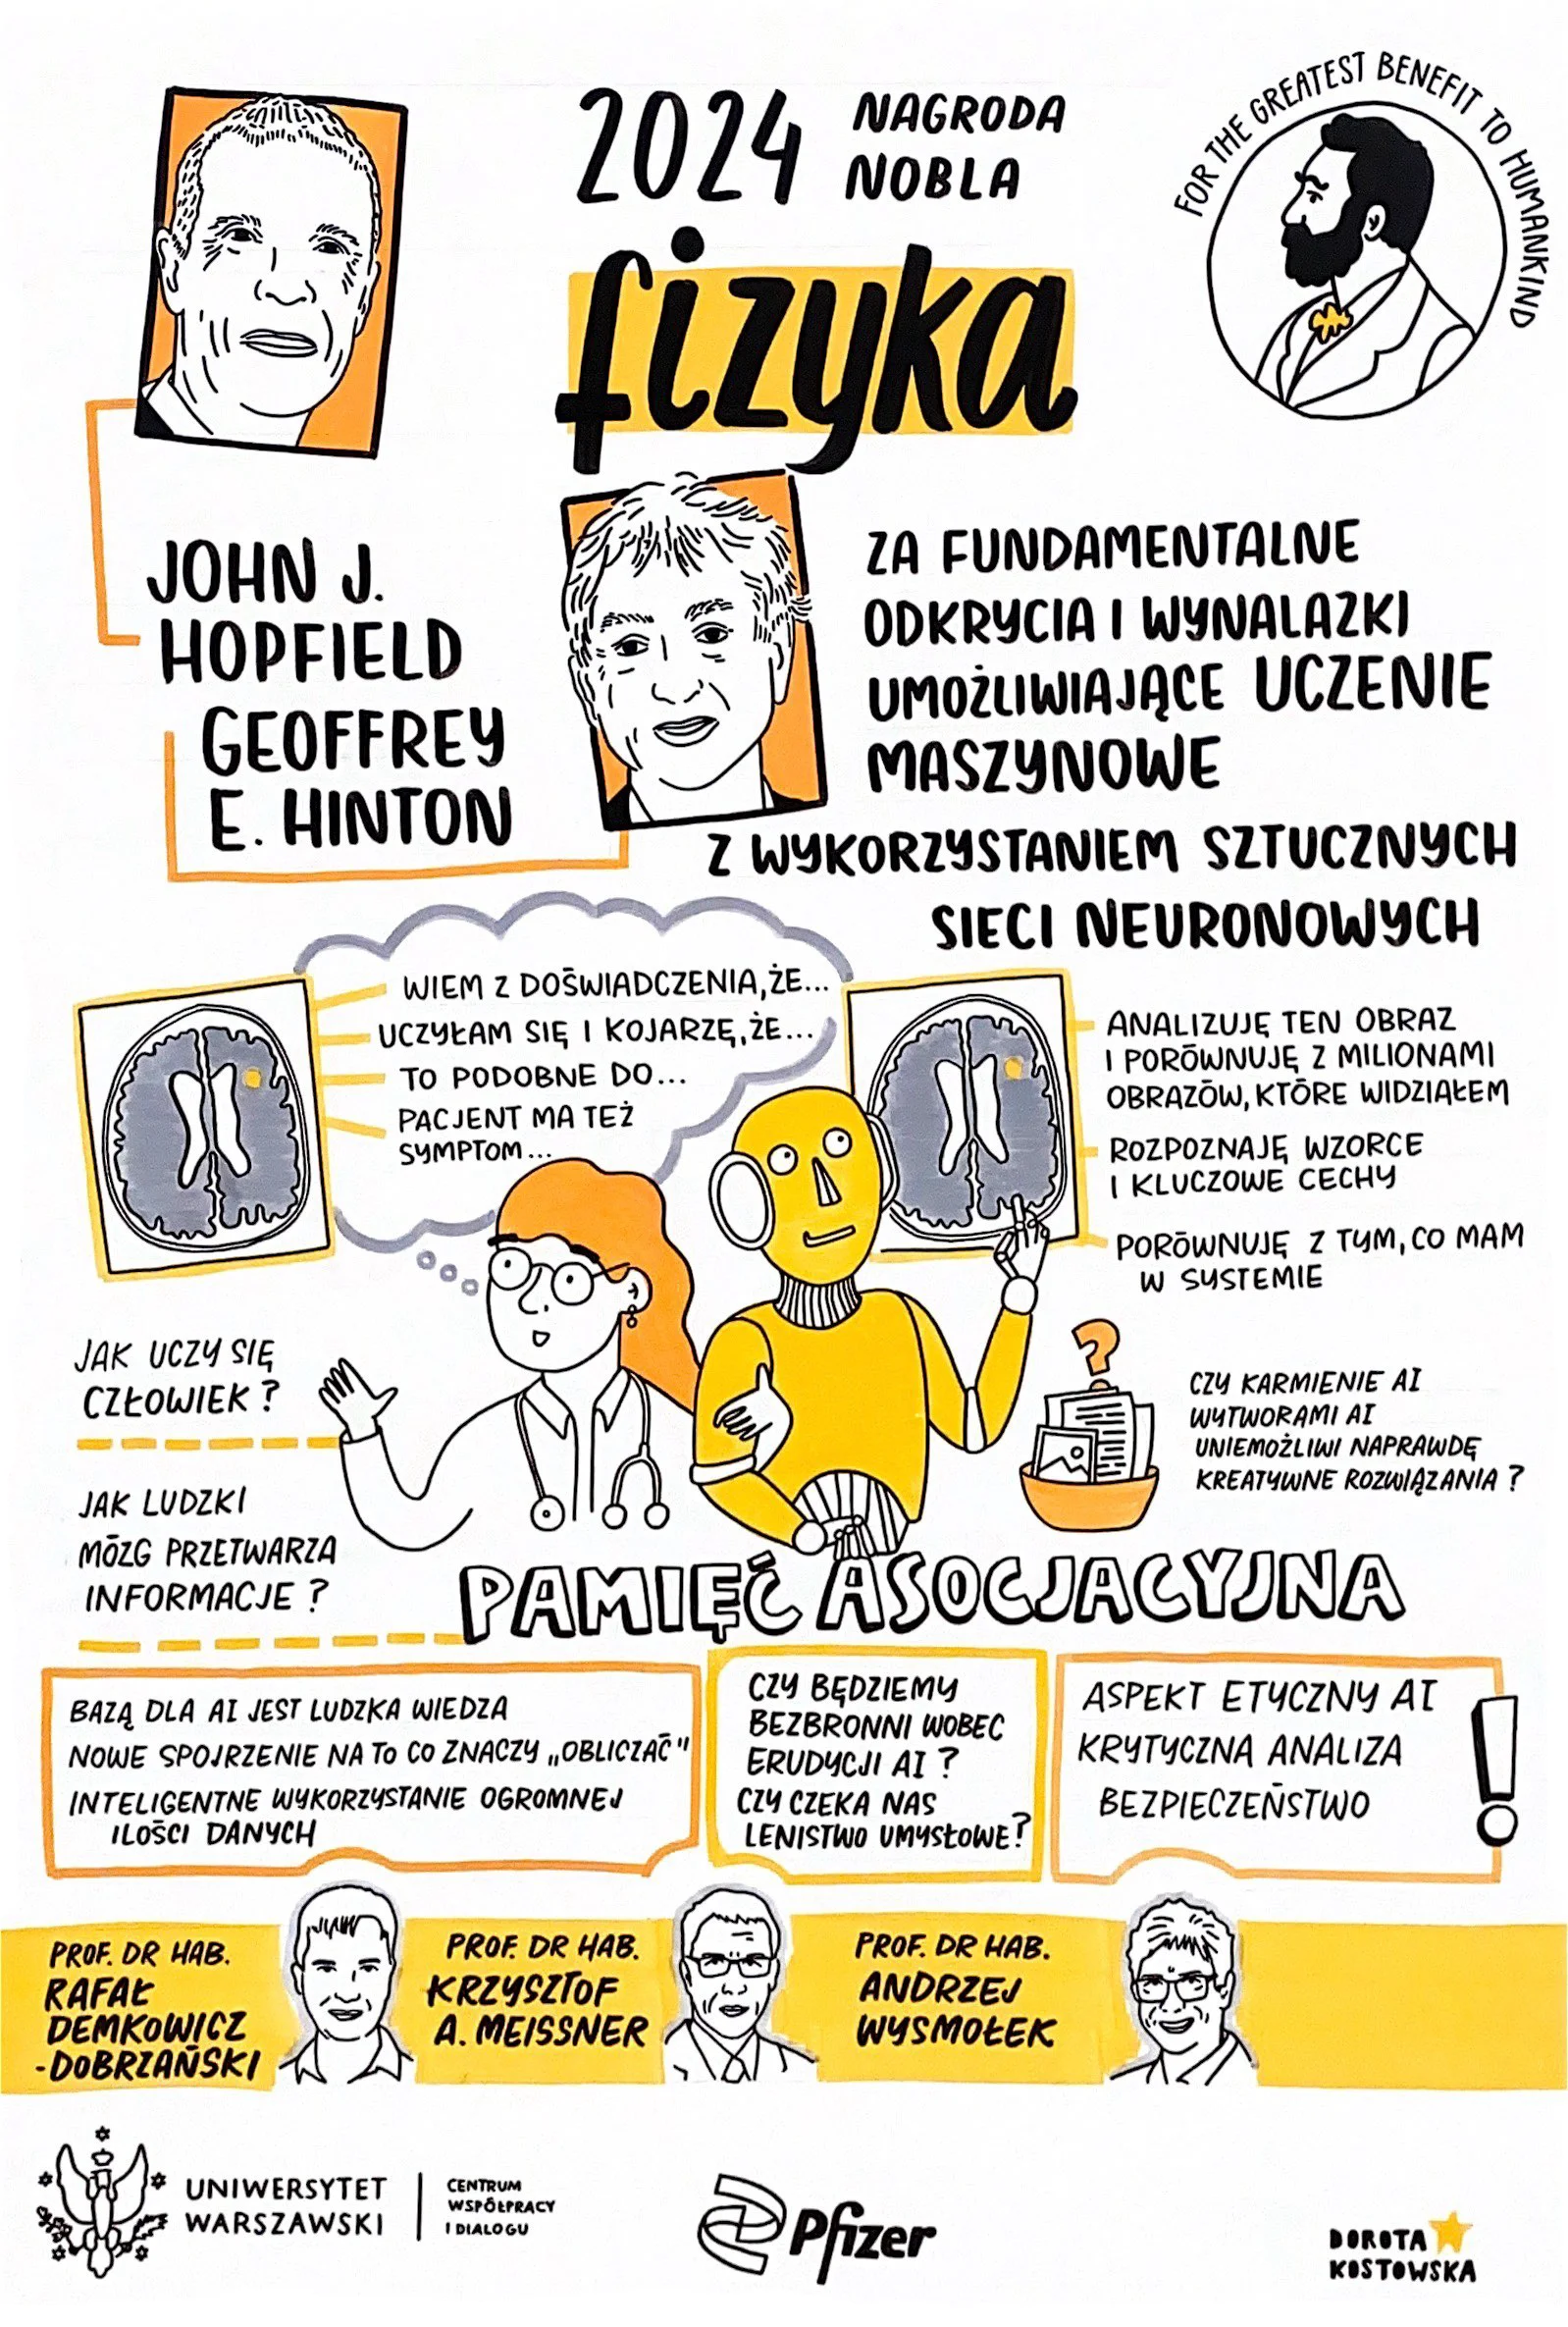 2024 NAGRODA
NOBLA
fizyka
FOR THE GREATEST BENEFIT TO HUMANKIND
JOHN J.
HOPFIELD
GEOFFREY
E. HINTON
ZA FUNDAMENTALNE
ODKRYCIA I WYNALAZKI
UMOŻLIWIAJĄCE UCZENIE
MASZYNOWE
Z WYKORZYSTANIEM SZTUCZNYCH
SIECI NEURONOWYCH
WIEM Z DOŚWIADCZENIA, ŻE...
UCZYŁAM SIĘ I KOJARZĘ, ŻE...
TO PODOBNE DO...
PACJENT MA TEŻ
SYMPTOM...
ANALIZUJĘ TEN OBRAZ
I PORÓWNUJĘ Z MILIONAMI
OBRAZÓW, KTÓRE WIDZIAŁEM
ROZPOZNAJĘ WZORCE
I KLUCZOWE CECHY
PORÓWNUJĘ Z TYM, CO MAM
W SYSTEMIE
JAK UCZY SIĘ
CZŁOWIEK?
JAK LUDZKI
MÓZG PRZETWARZA
INFORMACJE?
?
CZY KARMIENIE AI
WYTWORAMI AI
UNIEMOŻLIWI NAPRAWDĘ
KREATYWNE ROZWIĄZANIA?
PAMIĘĆ ASOCJACYJNA
BAZĄ DLA AI JEST LUDZKA WIEDZA
NOWE SPOJRZENIE NA TO CO ZNACZY „OBLICZAĆ"
INTELIGENTNE WYKORZYSTANIE OGROMNEJ
ILOŚCI DANYCH
CZY BĘDZIEMY
BEZBRONNI WOBEC
ERUDYCJI AI?
CZY CZEKA NAS
LENISTWO UMYSŁOWE?
ASPEKT ETYCZNY AI
KRYTYCZNA ANALIZA
BEZPIECZEŃSTWO
!
PROF. DR HAB.
RAFAŁ
DEMKOWICZ
-DOBRZAŃSKI
PROF. DR HAB.
KRZYSZTOF
A. MEISSNER
PROF. DR HAB.
ANDRZEJ
WYSMOŁEK
UNIWERSYTET
WARSZAWSKI
CENTRUM
WSPÓŁPRACY
I DIALOGU
Pfizer
DOROTA
KOSTOWSKA